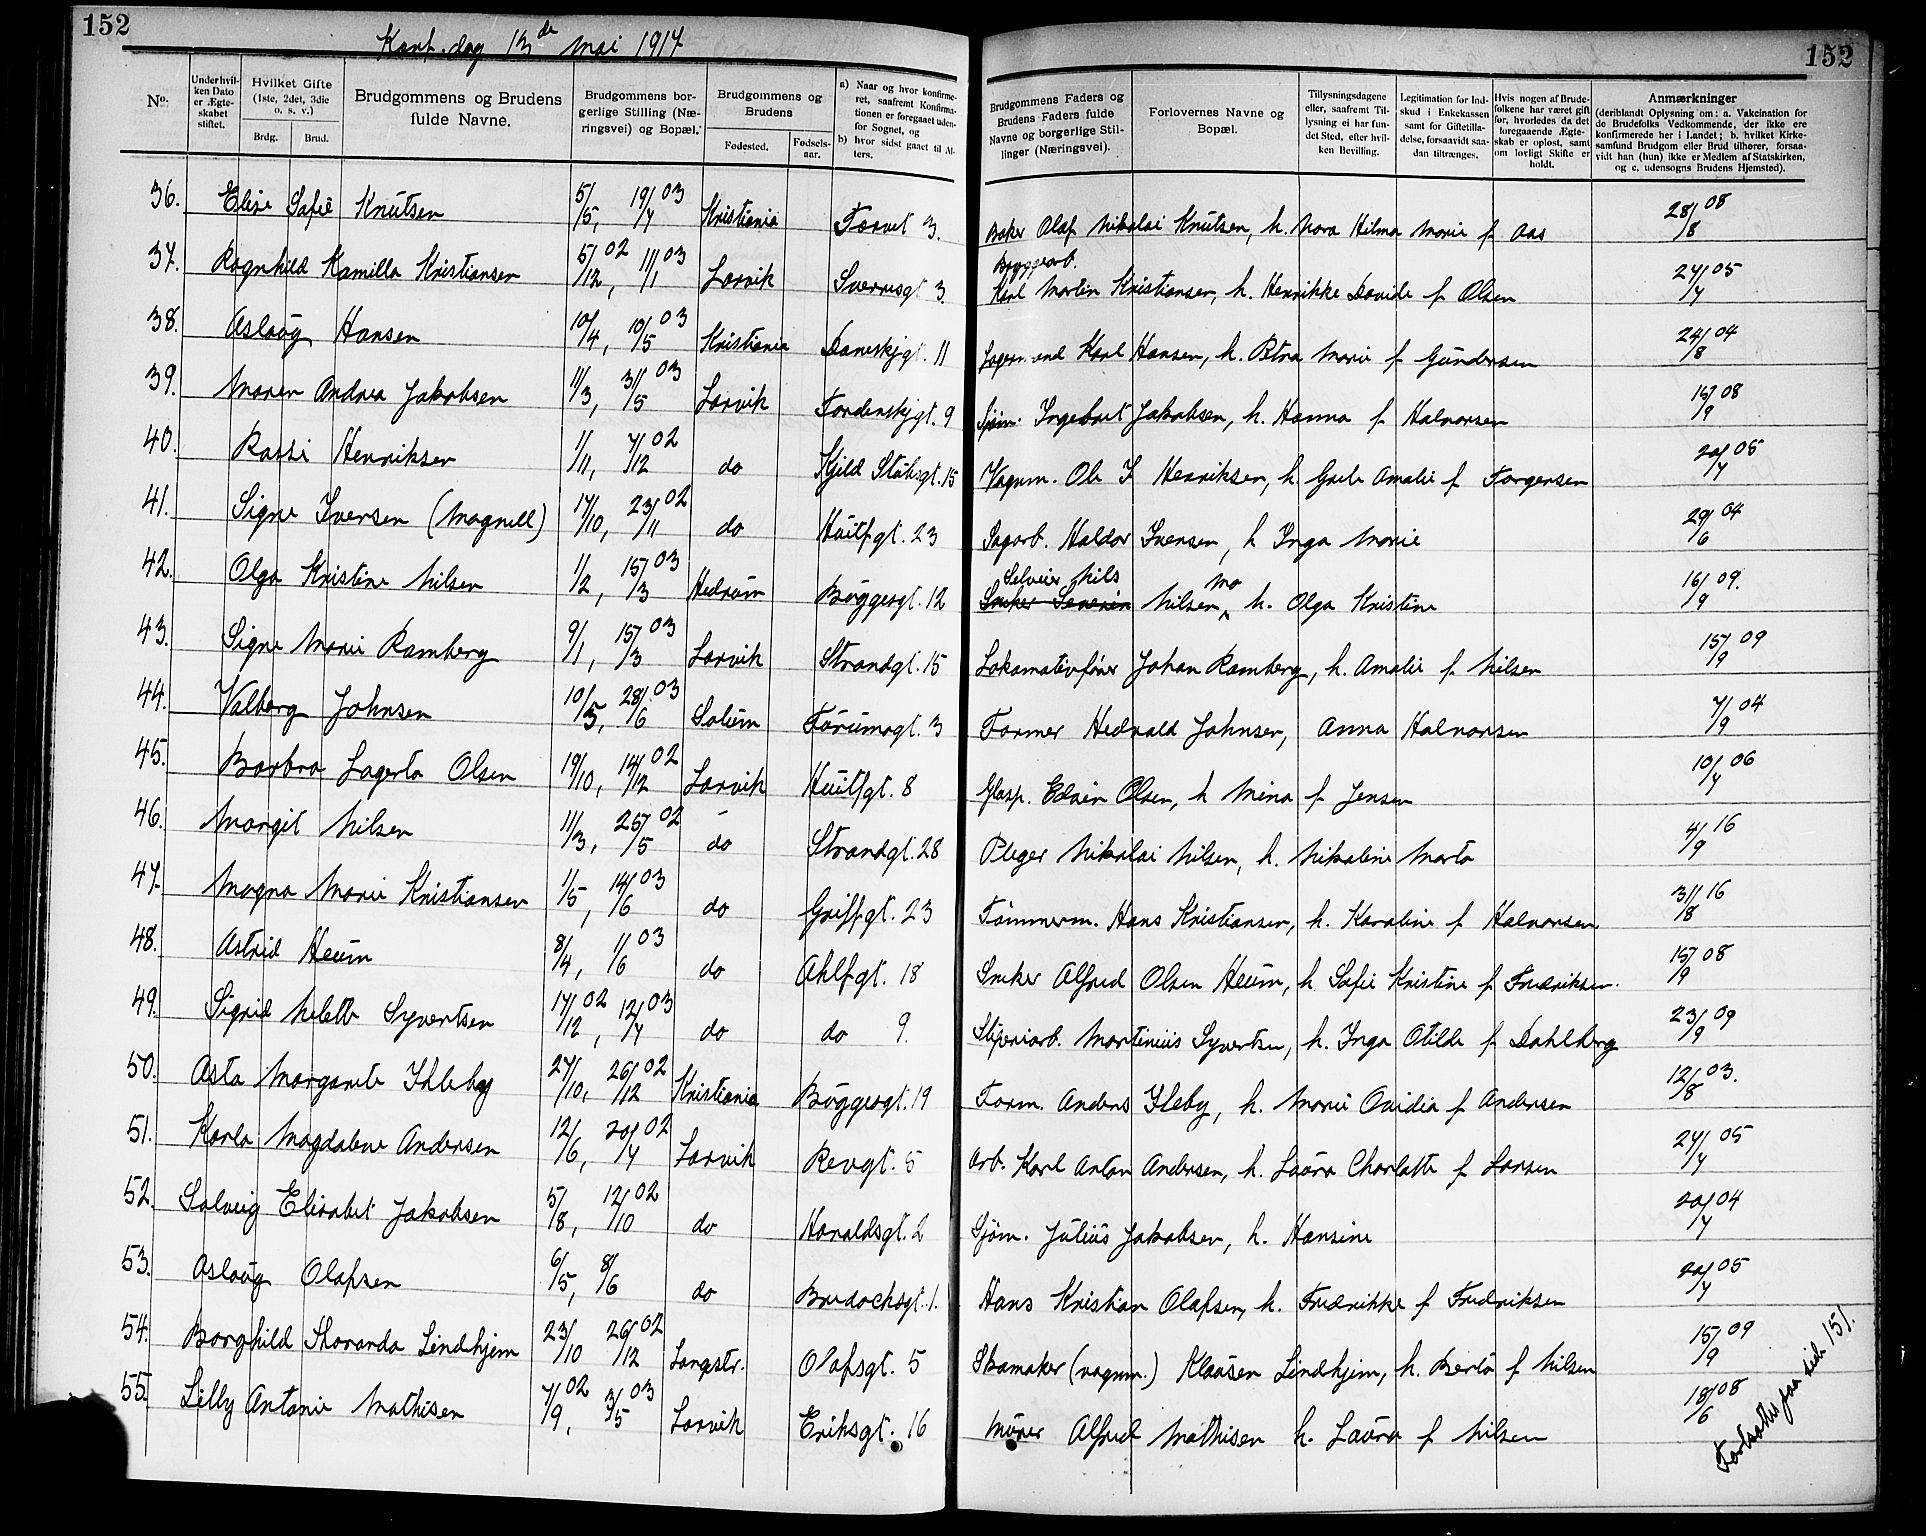 152
Konf. dag 13de Mai 1917
152
No.
Under hvilken Dato er Ægteskabet stiftet.
Hvilket Gifte (1ste, 2det, 3die o. s. v.)
Brdg. Brud.
Brudgommens og Brudens fulde Navne.
Brudgommens borgerlige Stilling (Næringsvei) og Bopæl.
Brudgommens og Brudens
Fødested. Fødselsaar.
a) Naar og hvor konfirmeret, saafremt Konfirmationen er foregaaet udenfor Sognet, og
b) hvor sidst gaaet til Alters.
Brudgommens Faders og Brudens Faders fulde Navne og borgerlige Stillinger (Næringsvei).
Forlovernes Navne og Bopæl.
Tillysningsdagene eller, saafremt Tillysning ei har fundet Sted, efter hvilken Bevilling.
Legitimation for Indskud i Enkekassen samt for Giftetilladelse, forsaavidt saadan tiltrænges.
Hvis nogen af Brudefolkene har været gift før, hvorledes da det foregaaende Ægteskab er opløst, samt om lovligt Skifte er holdt.
Anmærkninger
(deriblandt Oplysning om: a. Vakcination for de Brudefolks Vedkommende, der ikke ere konfirmerede her i Landet; b. hvilket Kirkesamfund Brudgom eller Brud tilhører, forsaavidt han (hun) ikke er Medlem af Statskirken, og c. udensogns Brudens Hjemsted).
36. Elise Sofie Knutsen 5/5, 19/7 03 Kristiania Torvet 3. Baker Olaf Nikolai Knutsen, h. Nora Hilma Marie f Aas 28/8 08
37. Ragnhild Kamilla Kristiansen 5/12 02, 11/1 03 Larvik Sverresgt 3. Bryggearb. Karl Martin Kristiansen, h. Henrikke Davide f Olsen 27/7 05
38. Aslaug Hansen 10/4, 10/5 03 Kristiania Daneskjgt. 11 Karl Hansen, h. Petra Marie f Gundersen 24/8 04
39. Maren Andrea Jakobsen 11/3, 31/5 03 Larvik Tordenskjgt. 9 Sjøm. Ingebret Jakobsen, h. Hanna f Halvorsen 15/9 08
40. Henriksen 1/11, 7/12 02 do Kjeld Stubsgt. 15 Vognm. Ole J Henriksen, h. Grete Amalie f Torgersen 20/7 05
41. Signe Iversen (Magnell) 17/10, 23/11 02 do Huitfgt. 23 Sagarb. Haldor Iversen, h Inga Marie 29/6 04
42. Olga Kristine Nilsen 1/2, 15/3 03 Hedrum Bøggesgt. 12 Selveier Nils Snekker Severin Nilsen, mo h. Olga Kristine 16/9 09.
43. Signe Marie Ramberg 9/1, 15/3 03 Larvik Strandgt. 15 Lokomotivfører Johan Ramberg, h. Amalie f Nilsen 15/9 09
44. Valborg Johnsen 10/5, 28/6 03 Solum 3 Former Hedvald Johnsen, Anna Halvorsen 7/9 04
45. Barbro Lagerta Olsen 19/10, 14/12 02 Larvik Huitfgt. 8 Glasp. Edvin Olsen, h Mina f Jensen 10/7 06
46. Margit Nilsen 11/3, 25/5 02 do Strandgt. 28 Pleger Nikolai Nilsen, h. Nikoline Marta 4/9 16
47. Magna Marie Kristiansen 1/5, 14/6 03 do Griffgt. 23 Tømmerm. Hans Kristiansen, h. Karoline f Halvorsen 31/8 16
48. Astrid Heum 8/4, 1/6 03 do Ahlfgt. 18 Sneker Alfred Olsen Heum, h Sofie Kristine f Fredriksen. 15/9 08
49. Sigrid Meletta Syvertsen 17/12 02, 12/7 03 do do 9. Sliperiarb. Martinius Syvertsen, h. Inga Otilde f Dahlberg 23/9 09
50. Asta Margarete Ihleby 27/10, 26/12 02 Kristiania Bøggesgt. 19 Form. Anders Ileby, h. Marie Ovidia f Andersen 12/8 03.
51. Karla Magdalene Andersen 12/6, 20/7 02 Larvik Revgt. 5 Arb. Karl Anton Andersen, h. Laura Charlotte f Larsen 27/7 05
52. Solveig Elisabet Jakobsen 5/8, 12/10 02 do Haraldsgt. 2 Sjøm. Julius Jakobsen, h. Hansine 20/7 04
53. Aslaug Olafsen 6/5, 8/6 do Bredochsgt. 1. Hans Kristian Olafsen, h. Fredrikke f Fredriksen 20/7 05
54. Borghild Thoranda Lindhjem 23/10 26/12 02 Langestr. Olafsgt. 5 Skomaker (vognm.) Klausen Lindhjem, h. Berta f Nilsen 15/9 09
55. Lilly Antonie Mathisen 7/9 02, 3/5 03 Larvik Eriksgt. 16 Murer Alfred Mathisen h. Laura f Nilsen 18/6 08
Fortsættes paa side 151.